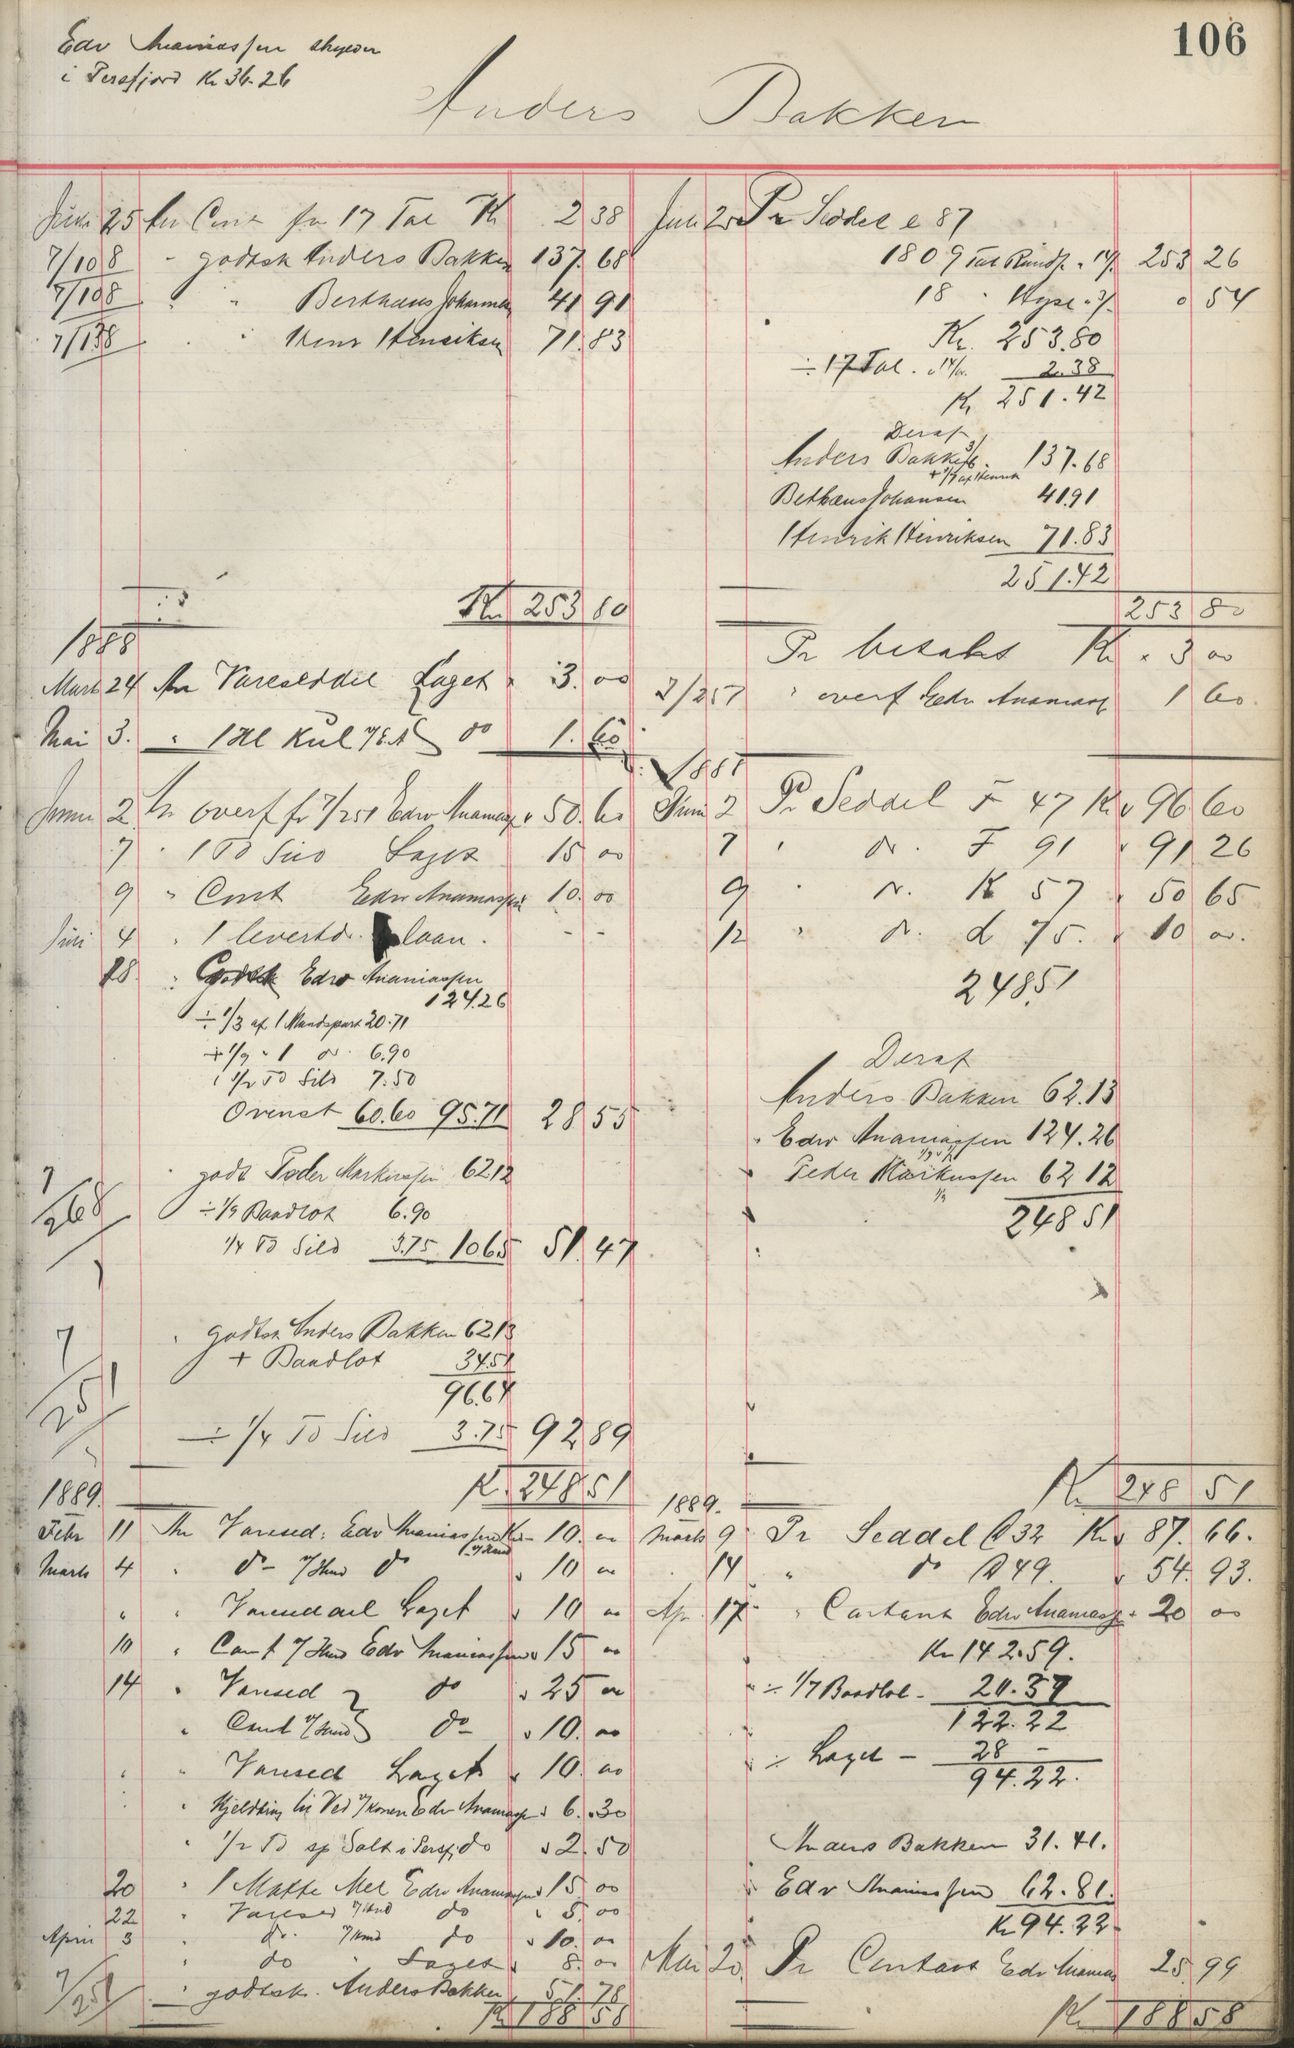 106
Edv Ananiassen skyeder
i Persfjord Kr 36.26
Anders Bakken
Juli 25 An Cont for 17 Tal Kr 2 38
7/108 " godtsk Anders Bakken 137. 68
7/108 " " Berthaus Johannesen 41 91
7/138 " " Henr Henriksen 71. 83
Kr 253 80
1888
Marts 24 An Vareseddel Laget " 3. 00
Mai 3. " 1 Hl Kul v/ E.A do 1. 60
Juni 2 An overf fr 7/251 Edv Ananiass " 50. 60
7 " 1 Td Sild Laget 15 00
9 " Cont Edv Ananiassen 10. 00
Juli 4 " 1 levertd. laan. - -
18 " Godtsk Edv Ananiassen
124.26
÷ 1/3 af 1 Mandspart 20.71
+ 1/9 " 1 do. 6.90
1/2 Td Sild 7.50
Ovenst 60.60 95.71 28 55
7/268 " godt Peder Markussen 62.12
÷ 1/9 Baadlot 6.90
1/4 Td Sild 3.75 10.65 51. 47
7/251 " godtsk Anders Bakken 62.13
+ Baadlot 34.51
96.64
÷ 1/4 Td Sild 3.75 92 89
K. 248 51
1889.
Febr 11 An Varesed: Edv Ananiassen Kr " 10. 00
Marts 4 " do v/ Hmd do " 10 00
" " Varesedel Laget " 10 00
10 " Cont v/ Hmd Edv Ananiassen " 15 00
14 " Varesed do " 25 00
" Cont v/ Hmd do " 10. 00
" " Varesed Laget " 10. 00
" " Kjeldsing til Ved v/ Konen Edv Ananiass " 6. 30
" 1/2 Td sp Salt i Persfj do " 2. 50
20 " 1 Matte Mel Edv Ananiassen " 15 00
22 " Varesed v/ Hmd do " 5. 00
April 3 " do. v/ Hmd do " 10. 00
" do " Laget " 8. 00
7/251 " godtsk. Anders Bakken 51. 78
Kr 188 58
Juli 25 Pr Seddel e 87
1809 Tal Rundf. " 14/. 253 26
18 " Hyse " 3/. 0 54
Kr. 253.80
÷ 17 Tal. " 14/. 2.38
Kr 251.42
Deraf
Anders Bakken 3/6. 137.68
Bethaus Johansen 41.91
Henrik Henriksen 71.83
251.42
253 80
Pr betalt Kr " 3 00
7/257 " overf Edv Ananiass 1 60.
1888
Juni 2 Pr Seddel F 47 Kr " 96 60
7 " do. F 91 " 91 26
9 " do. K 57 " 50 65
12 " do. L 75. " 10 00.
248.51
Deraf
Anders Bakken 62.13
Edv Ananiassen 124.26
Peder Markussen 62 12
248 51
Kr 248 51
1889.
Marts 9 Pr Seddel Q 32 Kr " 87. 66.
14 " do Q 49. " 54. 93.
Apr. 17 " Contant Edv Ananiassen " 20 00
Kr 142.59.
÷ 1/7 Baadlot - 20.37
122.22
÷ Laget - 28 -
94.22.
Anders Bakken 31.41.
Edv Ananiassen 62.81.
Kr 94.22
Mai 20. Pr Contant Edv Ananias 25. 99
Kr 188 58